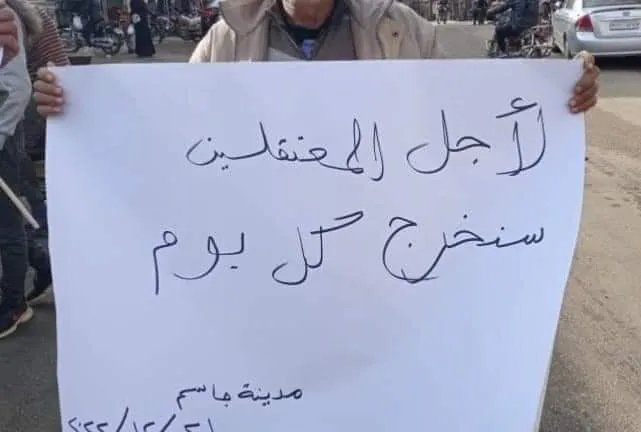 لأجل المعتقلين
سنخرج كل يوم
مدينة جاسم
٢٠٢٢/١٢/٢١